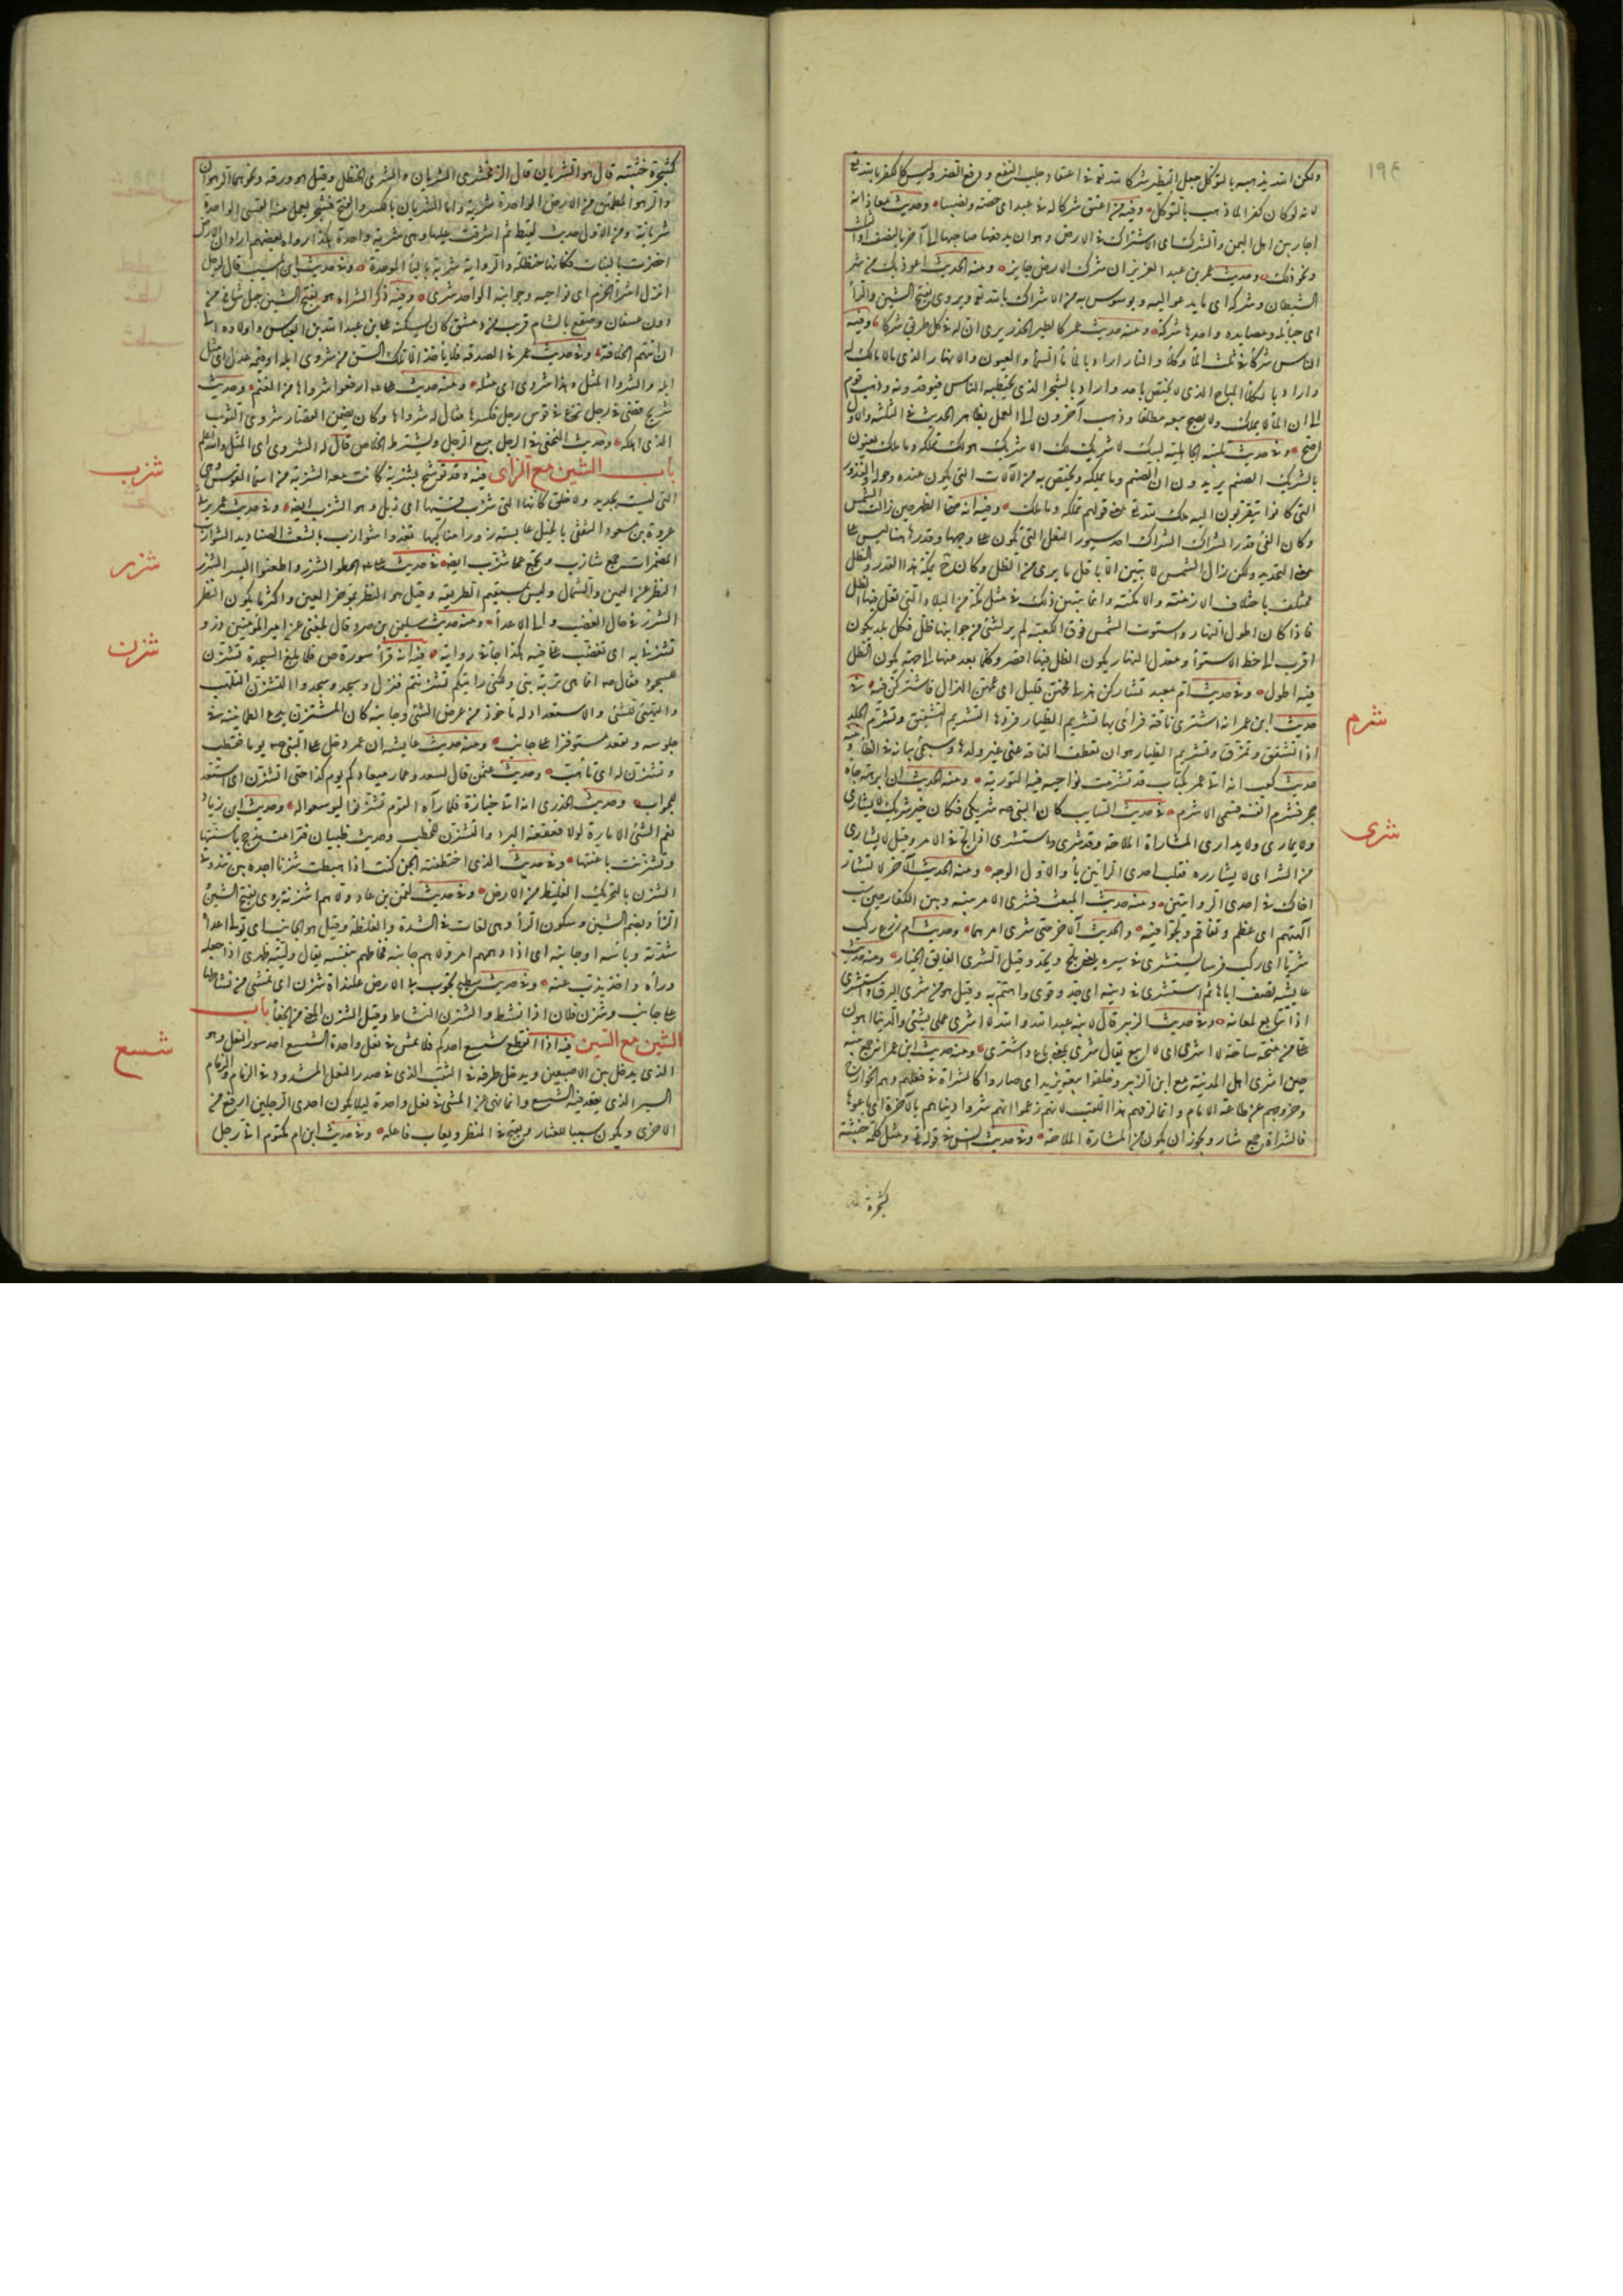 ١٩٤
ولكن الله يذهبه بالتوكل جعل التطير شركا بالله تعالى في اعتقاد جلب النفع ودفع الضر وليس كالكفر بالله
لانه لو كان كفرا لما ذهب بالتوكل وفيه من اعتق شركا له في عبد اى حصة ونصيبا وحديث معاذ انه
اجاز بين اهل اليمن والشرك اى الاشتراك في الارض وهو ان يدفعها صاحبها الى آخر بالنصف او الثلث
ونحو ذلك وحديث عمر بن عبد العزيز ان شرك الارض جايز ومنه الحديث اعوذ بك من شر
الشيطان وشركه اى ما يدعو اليه ويوسوس به من الاشراك بالله تعالى ويروى بفتح الشين والرا
اى حبايله ومصايده واحدها شركة ومنه حديث عمر كالطير الحذر يرى ان له في كل طريق شركا وفيه
الناس شركا في ثلث الما والكلا والنار اراد بالما ما السما والعيون والانهار الذى لا مالك له
واراد بالكلا المباح الذى لا يختص باحد واراد بالشجر الذى يحتطبه الناس فيوقدونه وذهب قوم
الى ان الما لا يملك ولا يصح بيعه مطلقا وذهب آخرون الى العمل بظاهر الحديث في الثلثة والاول
اصح وفي حديث تلبية الجاهلية لبيك لا شريك لك الا شريك هو لك تملكه وما ملك يعنون
بالشريك الصنم يريدون ان الصنم وما يملكه ويختص به من الآلات التى يكون عنده وحوله والنذور
التى كانوا يتقربون اليه ملك لله تعالى معنى قولهم تملكه وما ملك وفيه انه صلى الظهر حين زالت الشمس
وكان الفى قدر الشراك الشراك احد سيور النعل التى تكون على وجهها وقدره ههنا ليس على
معنى التحديد ولكن زوال الشمس لا يتبين الا باقل ما يرى من الظل وكان بمكة هذا القدر والظل
مختلف باختلاف الازمنة والامكنة وانما يتبين ذلك في مثل مكة من البلاد التى يقل فيها الظل
فاذا كان اطول النهار واستوت الشمس فوق الكعبة لم ير لشى من جوانبها ظل فكل بلد يكون
اقرب الى خط الاستوا ومعدل النهار يكون الظل فيها اقصر وكلما بعد عنها الى جهة يكون الظل
فيه اطول وفي حديث ام معبد تشاركن هزلى مخهن قليل اى عمهن الهزال فاشتركن فيه في
شرم
حديث ابن عمر انه اشترى ناقة فرأى بها تشريم الظئار فردها التشريم التشقيق وتشرم الجلد
اذا تشقق وتمزق وتشريم الظئار هو ان تعطف الناقة على غير ولدها وسيجى بيانه في الظا
حديث كعب انه اتى عمر بكتاب قد تشرمت نواحيه فيه التورية ومنه الحديث ان ابرهة جاه
حجر فشرم انفه فسمى الاشرم في حديث السايب كان النبى صلعم شريكى فكان خير شريك لا يشارى
شرى
ولا يمارى ولا يدارى المشاراة الملاجة وقد شرى واستشرى اذا لج في الامر وقيل لا يشارى
من الشر اى لا يشارره فقلب احدى الراءين يا والاول الوجه ومنه الحديث الآخر لا تشار
اخاك في احدى الروايتين ومنه حديث المبعث فشرى الامر بينه وبين الكفار حين سب
آلهتهم اى عظم وتفاقم ولجوا فيه والحديث الآخر حتى شرى امرهما وحديث ام زرع ركب
شريا اى ركب فرسا يستشرى في سيره يعنى يلج ويجد وقيل الشرى الفايق الخيار ومنه حديث
عايشة تصف اباها ثم استشرى في دينه اى جد وقوى واهتم به وقيل هو من شرى البرق واستشرى
اذا تتابع لمعانه وفي حديث الزبير قال لابنه عبد الله والله لا اشرى عملى بشى والدنيا اهون
على من منحة ساحة لا اشرى اى لا ابيع يقال شرى بمعنى باع واشترى ومنه حديث ابن عمر انه جمع بنيه
حين اشرى اهل المدينة مع ابن الزبير وخلعوا بيعة يزيد اى صاروا كالشراة في فعلهم وهم الخوارج
وخروجهم عن طاعة الامام وانما لزمهم هذا اللقب لانهم زعموا انهم شروا دنياهم بالآخرة اى باعوها
فالشراة جمع شار ويجوز ان يكون من المشارة الملاجة وفي حديث انس في قوله تعالى ومثل كلمة خبيثة
كشجرة
كشجرة خبيثة قال هو الشريان قال الزمخشرى الشريان والشرى الحنظل وقيل هو ورقه ونحوهما الرهوان
والرهو المطمئن من الارض الواحدة شرية واما الشريان بالكسر والفتح فشجر يعمل منه القسى الواحدة
شريانة ومن الاول حديث لقيط ثم اشرفت عليها وهى شرية واحدة هكذا رواه بعضهم اراد ان الارض
اخضرت بالنبات فكانها حنظلة والرواية شربة بالبا الموحدة وفي حديث ابن المسيب قال لرجل
انزل اشرا الحرم اى نواحيه وجوانبه الواحد شرى وفيه ذكر الشراه هو بفتح الشين جبل شامخ من
دون عسفان وصقع بالشام قريب من دمشق كان يسكنه على بن عبد الله بن العباس واولاده الى
ان اتتهم الخلافة وفي حديث عمر في الصدقة فلا ياخذ الا تلك السن من شروى ابله او قيمة عدل اى مثل
ابله والشروا المثل وهذا شروى اى مثله ومنه حديث على ادفعوا شرواها من الغنم وحديث
شريح قضى في رجل نزع في قوس رجل فكسرها فقال له شرواها وكان يضمن القصار شروى الثوب
الذى اهلكه وحديث النخعى في الرجل يبيع الرجل ويشترط الخلاص قال له الشروى اى المثل والله اعلم
باب الشين مع الزاى فيه وقد توشح بشزبة كانت معه الشزبة من اسما القوس وهى
شزب
التى ليست بجديد ولا خلق كانها التى شزب قضيبها اى ذبل وهو الشزب ايضا وفي حديث عمر يرثى
عروة بن مسعود الثقفى بالخيل عابسة زورا مناكبها تعدو شوازب بالشعث الصناديد الشوازب
المضمرات جمع شازب ويجمع على شزب ايضا في حديث على الحظوا الشزر واطعنوا اليسر الشزر
شزر
النظر عن اليمين والشمال وليس بمستقيم الطريقة وقيل هو النظر بمؤخر العين واكثر ما يكون النظر
الشزر في حال الغضب والى الاعدا ومنه حديث سليمن بن صرد قال بلغنى عن امير المؤمنين ذرو
تشزر به اى تغضب على فيه هكذا جا في رواية فيه انه قرأ سورة ص فلما بلغ السجدة تشزن
شزن
للسجود فقال صلعم انما هى توبة نبى ولكنى رايتكم تشزنتم فنزل وسجد وسجدوا التشزن التاهب
والتهيئ للشى والاستعداد له ماخوذ من عرض الشى وجانبه كان المتشزن يدع الطمانينة في
جلوسه ويقعد مستوفزا على جانب ومنه حديث عايشة ان عمر دخل على النبى صلعم يوما فقطب
وتشزن له اى تاهب وحديث عثمن قال لسعد وعمار ميعادكم يوم كذا حتى اتشزن اى استعد
للجواب وحديث الخدرى انه اتى جنازة فلما رآه القوم تشزنوا ليوسعوا له وحديث ابن زياد
نعم الشى الامارة لولا قعقعة البرد والتشزن للخطب وحديث ظبيان فترامت مذحج باسنتها
وتشزنت باعنتها وفي حديث الذى اختطفته الجن كنت اذا هبطت شزنا اجده بين ثندوتى
الشزن بالتحريك الغليظ من الارض وفي حديث لقمن بن عاد وولاهم شزنه يروى بفتح الشين
والزا وبضم الشين وسكون الزا وهى لغات في الشدة والغلظة وقيل هو الجانب اى يولى اعداه
شدته وباسه او جانبه اى اذا دهمهم امر ولاهم جانبه فحاطهم بنفسه يقال وليته ظهرى اذا جعله
وراه واخذ يذب عنه وفي حديث سطيح تجوب بى الارض علنداة شزن اى تمشى من نشاطها
على جانب وشزن فلان اذا نشط والشزن النشاط وقيل الشزن المعى من الحفا باب
الشين مع السين فيه اذا انقطع شسع احدكم فلا يمش في نعل واحدة الشسع احد سيور النعل وهو
شسع
الذى يدخل بين الاصبعين ويدخل طرفه في الثقب الذى في صدر النعل المشدود في الزمام والزمام
السير الذى يعقد فيه الشسع وانما نهى عن المشى في نعل واحدة ليلا يكون احدى الرجلين ارفع من
الاخرى ويكون سببا للعثار ويقبح في المنظر ويعاب فاعله وفي حديث ابن ام مكتوم انى رجل